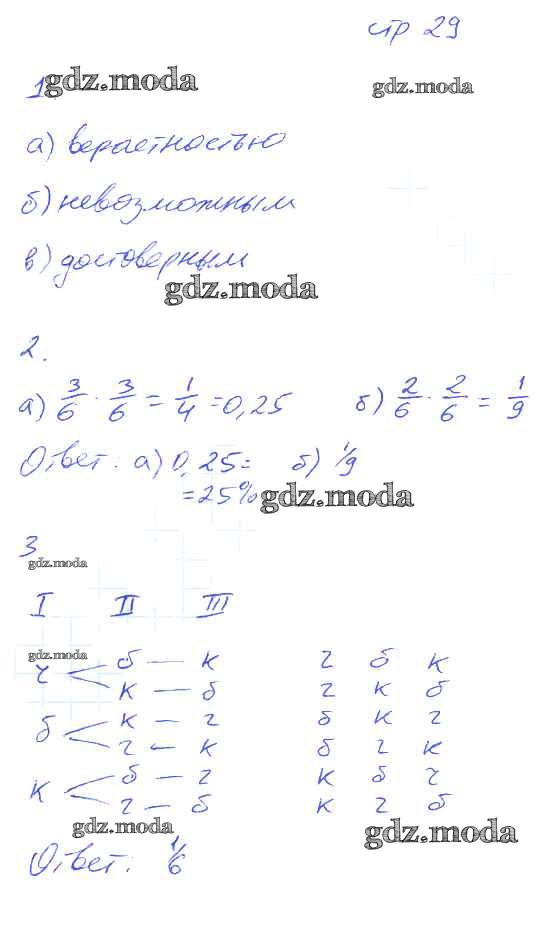 стр 29
1 gdz.moda gdz.moda
а) верастностью
б) невозможным
в) достоверным
gdz.moda
2.
а) 3/6 · 3/6 = 1/4 = 0,25 б) 2/6 · 2/6 = 1/9
Ответ: а) 0,25 = б) 1/9
= 25% gdz.moda
3
gdz.moda
I II III
gdz.moda
ч б — к ч б к
к — б ч к б
б к — ч б к ч
ч — к б ч к
к б — ч к б ч
ч — б к ч б
gdz.moda gdz.moda
Ответ: 1/6